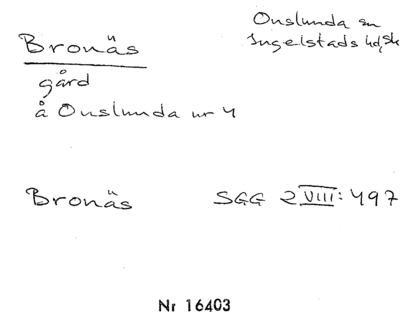 Bronäs
Onslunda sn
Ingelstads hd, Sk
gård
å Onslunda nr 4
Bronäs
SGG 2 VIII: 497
Nr 16403